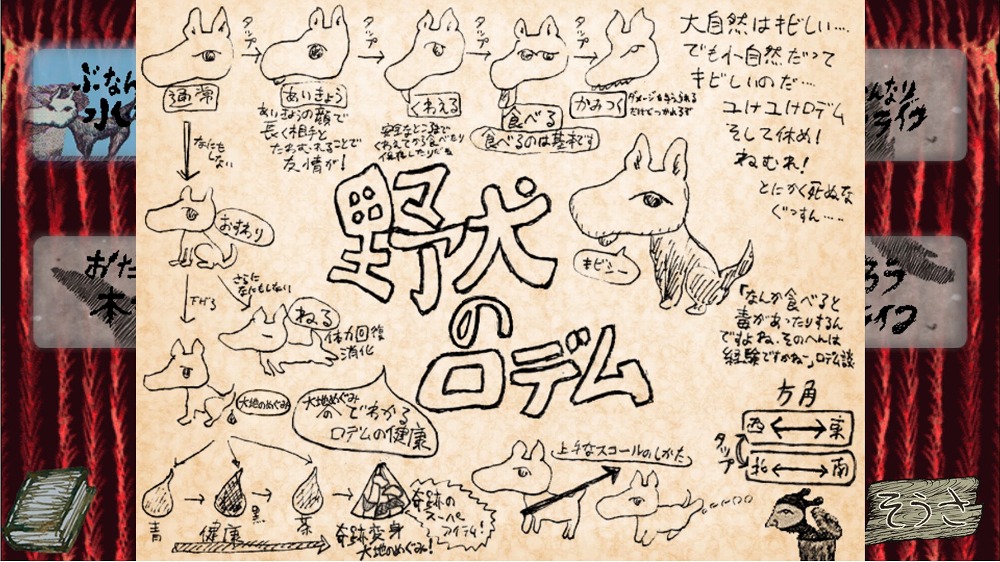 タップ
タップ
タップ
タップ
通常
あいきょう
くわえる
食べる
かみつく
ダメージを与えられる
だけどつかれるぞ
食べるのは基本です
あいきょうの顔で
長く相手と
たわむれることで
友情が!
安全なところまで
くわえてから食べたり
保護したりだぞ
なにも
しない
おすわり
下げる
さらに
なにもしない
ねる
体力回復
消化
大地のめぐみ
大地のめぐみ
の色でわかる
ロデムの健康
青
健康
黒
茶
奇跡変身
大地のめぐみ!
奇跡の
スーパー
アイテム!
野犬
の
ロデム
大自然はキビしい…
でも小自然だって
キビしいのだ…
ユけユけロデム
そして休め!
ねむれ!
とにかく死ぬな
ぐっすん……
キビシー
「なんか食べると
毒があったりするん
ですよね、そのへんは
経験ですかね」ロデム談
方角
西 東
タップ
北 南
上手なスコールのしかた
ぶなん
水
おた
木
んなり
ライヴ
ろう
ライフ
そうさ